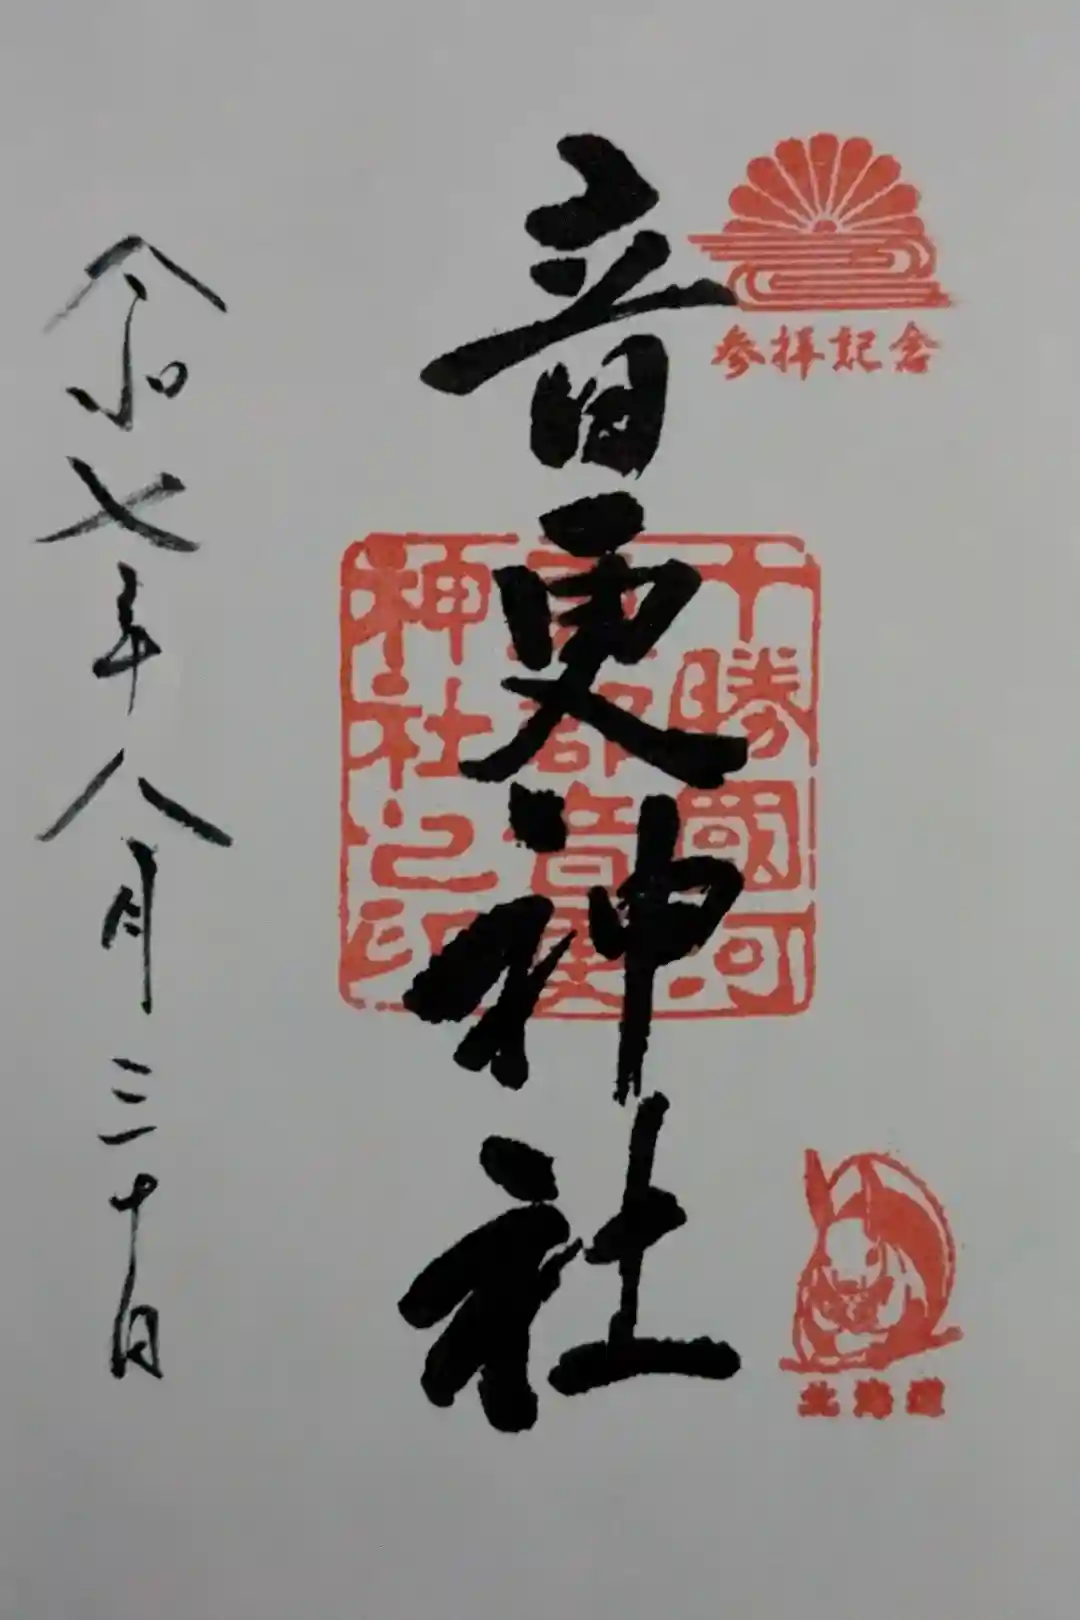 参拝記念
音更神社
十勝國河
東郡音更
神社之印
北海道
令和七年八月三十日